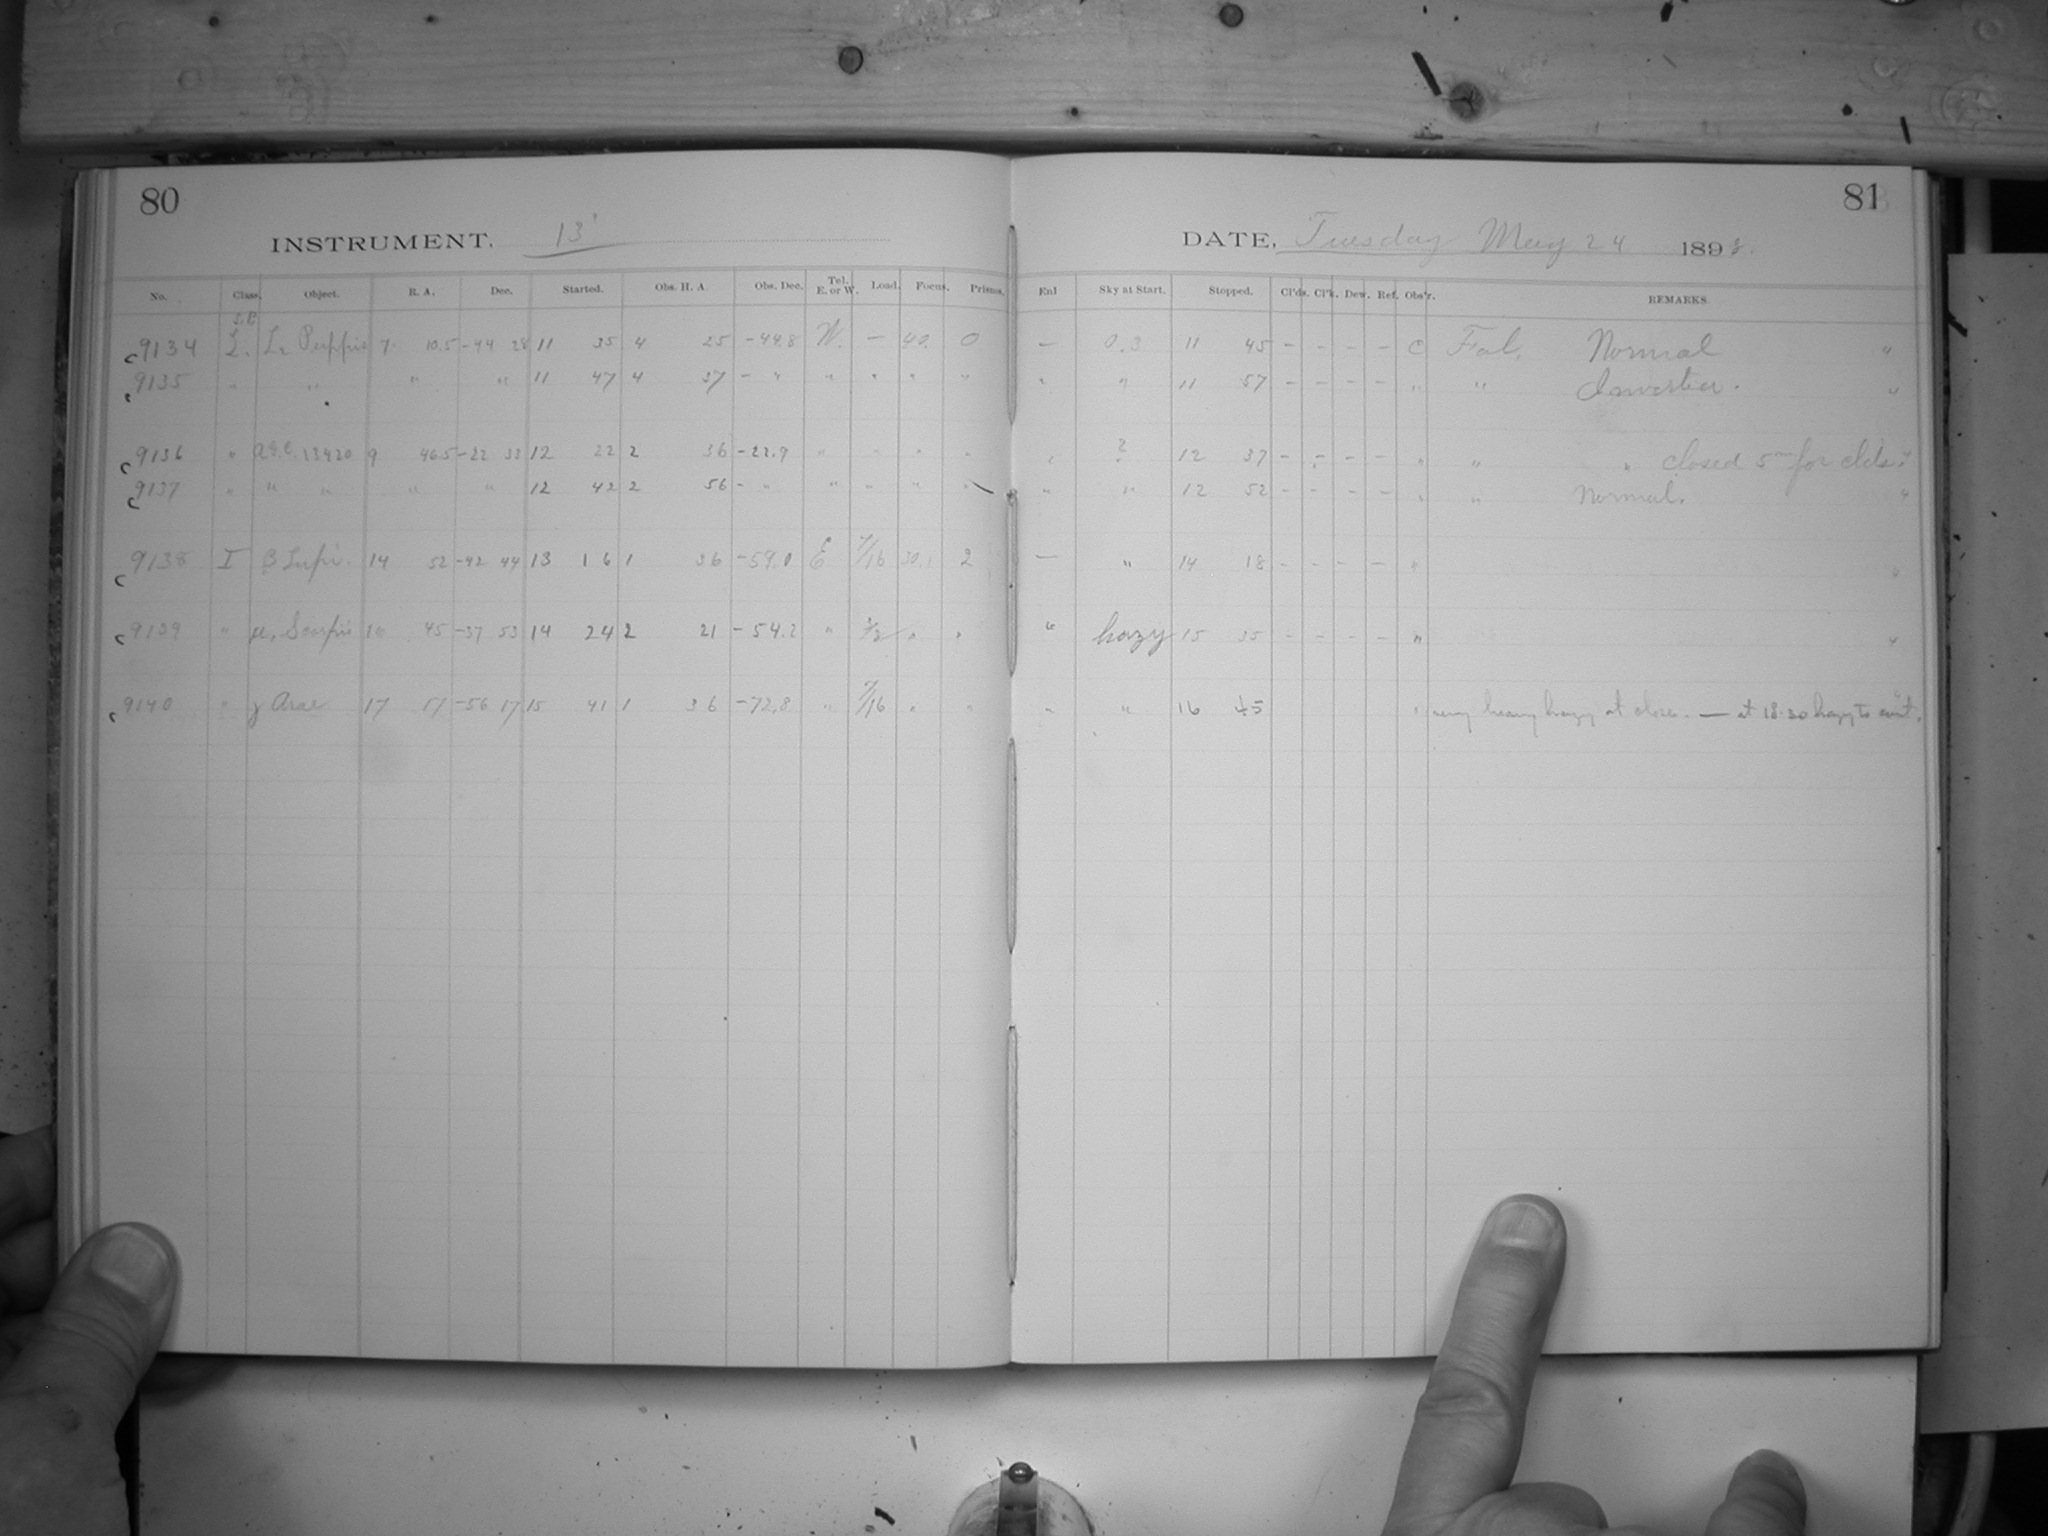 80
INSTRUMENT. 13'
No. Class. Object. R. A. Dec. Started. Obs. H. A. Obs. Dec. Tel. E. or W. Load. Focus. Prisms.
9134 L. L2 Puppis 7 10.5 -44 28 11 35 4 25 -44.8 W. — 40. 0
9135 " " " " 11 47 4 37 - " " " " "
9136 " A.G.C. 13420 9 46.5 -22 33 12 22 2 36 -22.9 " " " "
9137 " " " " " 12 42 2 56 - " " " " "
9138 I β Lupi. 14 52 -42 44 13 16 1 36 -59.0 E 7/16 30.1 2
9139 " μ, Scorpii 16 45 -37 53 14 24 2 21 -54.2 " 1/2 " "
9140 " γ Arae 17 17 -56 17 15 41 1 36 -72.8 " 7/16 " "
81
DATE, Tuesday May 24 1898.
Enl Sky at Start. Stopped. Cl'ds. Cl'k. Dew. Ref. Obs'r. REMARKS.
— 0.3 11 45 - - - - C Fol. Normal "
" " 11 57 - - - - " " Invertied. "
" ? 12 37 - - - - " " " closed 5m for clds. "
" " 12 52 - - - - " " Normal. "
— " 14 18 - - - - " "
" hazy 15 35 - - - - " "
" " 16 45 " very heavy hazy at close. — at 18.30 hazy to